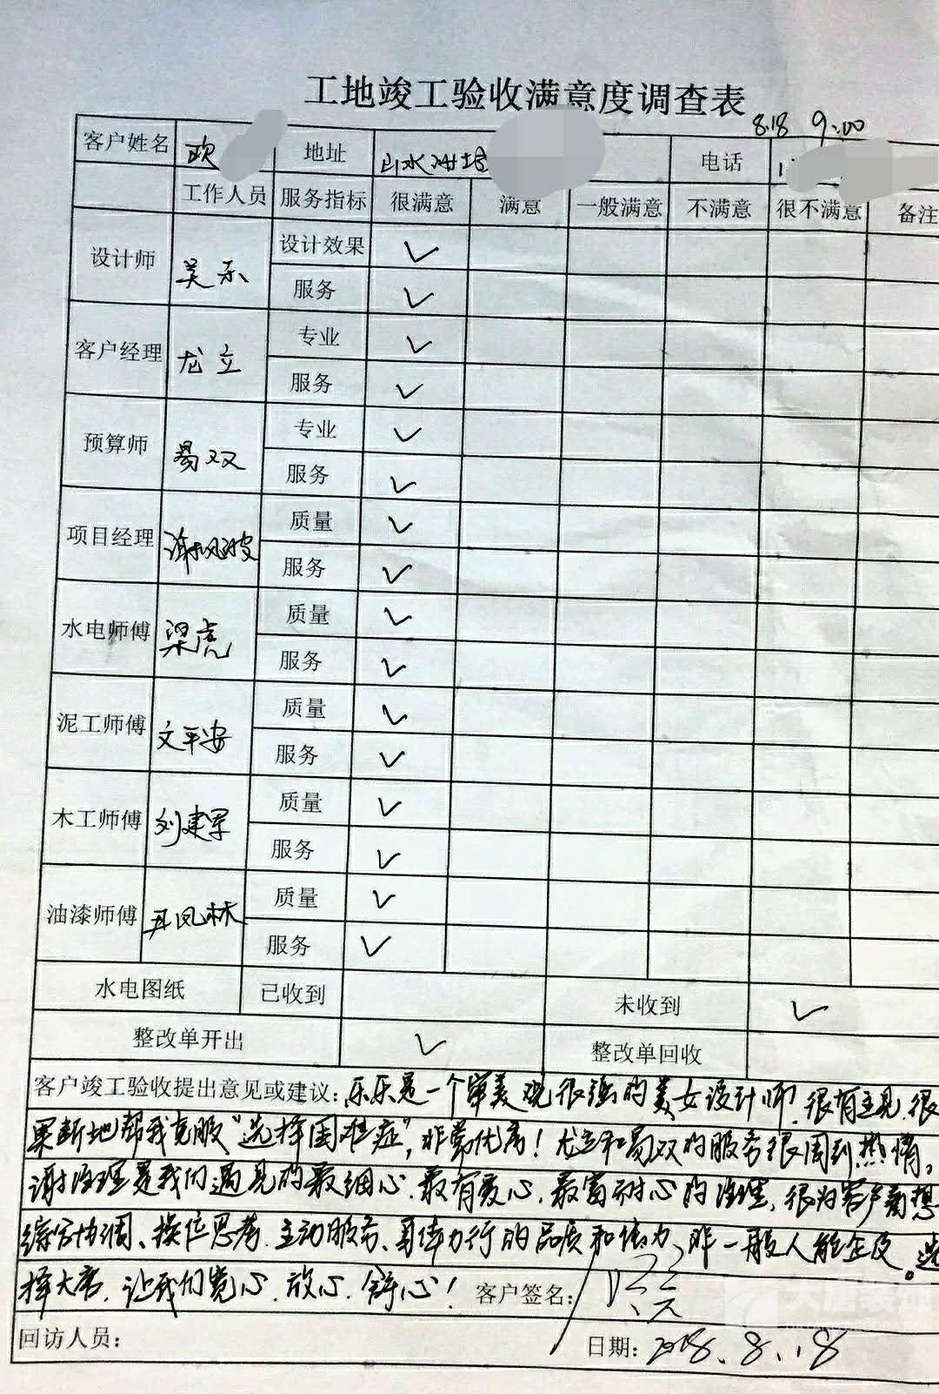 工地竣工验收满意度调查表
8.18 9:00
客户姓名 欧 地址 山水洲城 电话
工作人员 服务指标 很满意 满意 一般满意 不满意 很不满意 备注
设计师 吴乐 设计效果 ✓
服务 ✓
客户经理 龙立 专业 ✓
服务 ✓
预算师 易双 专业 ✓
服务 ✓
项目经理 谢 质量 ✓
服务 ✓
水电师傅 梁虎 质量 ✓
服务 ✓
泥工师傅 文平安 质量 ✓
服务 ✓
木工师傅 刘建军 质量 ✓
服务 ✓
油漆师傅 凤林 质量 ✓
服务 ✓
水电图纸 已收到 未收到 ✓
整改单开出 ✓ 整改单回收
客户竣工验收提出意见或建议：乐乐是一个审美观很强的美女设计师，很有主见，很
果断地帮我克服"选择困难症"，非常优秀！龙立和易双的服务很周到热情。
谢经理是我们遇见的最细心、最有爱心、最富耐心的经理，很为客户着想，
综合协调、换位思考、主动服务、身体力行的品质和能力，非一般人能企及。选
择大唐，让我们宽心、放心、舒心！ 客户签名：
回访人员： 日期：2018.8.18